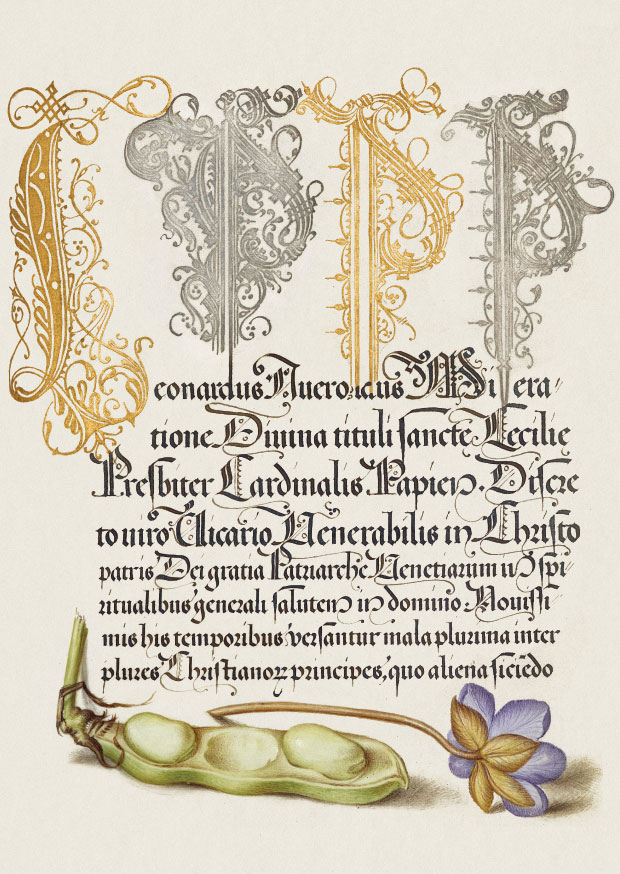 L P P P
eonardus Misera
tione Divina tituli sancte Cecilie
Presbiter Cardinalis Papien. Discre
to viro Vicario Venerabilis in Christo
patris Dei gratia Patriarche Venetiarum in Spi
ritualibus generali salutem in domino. Novissi
mis his temporibus versantur mala plurima inter
plures Christianoꝝ principes, quo aliena siciēdo